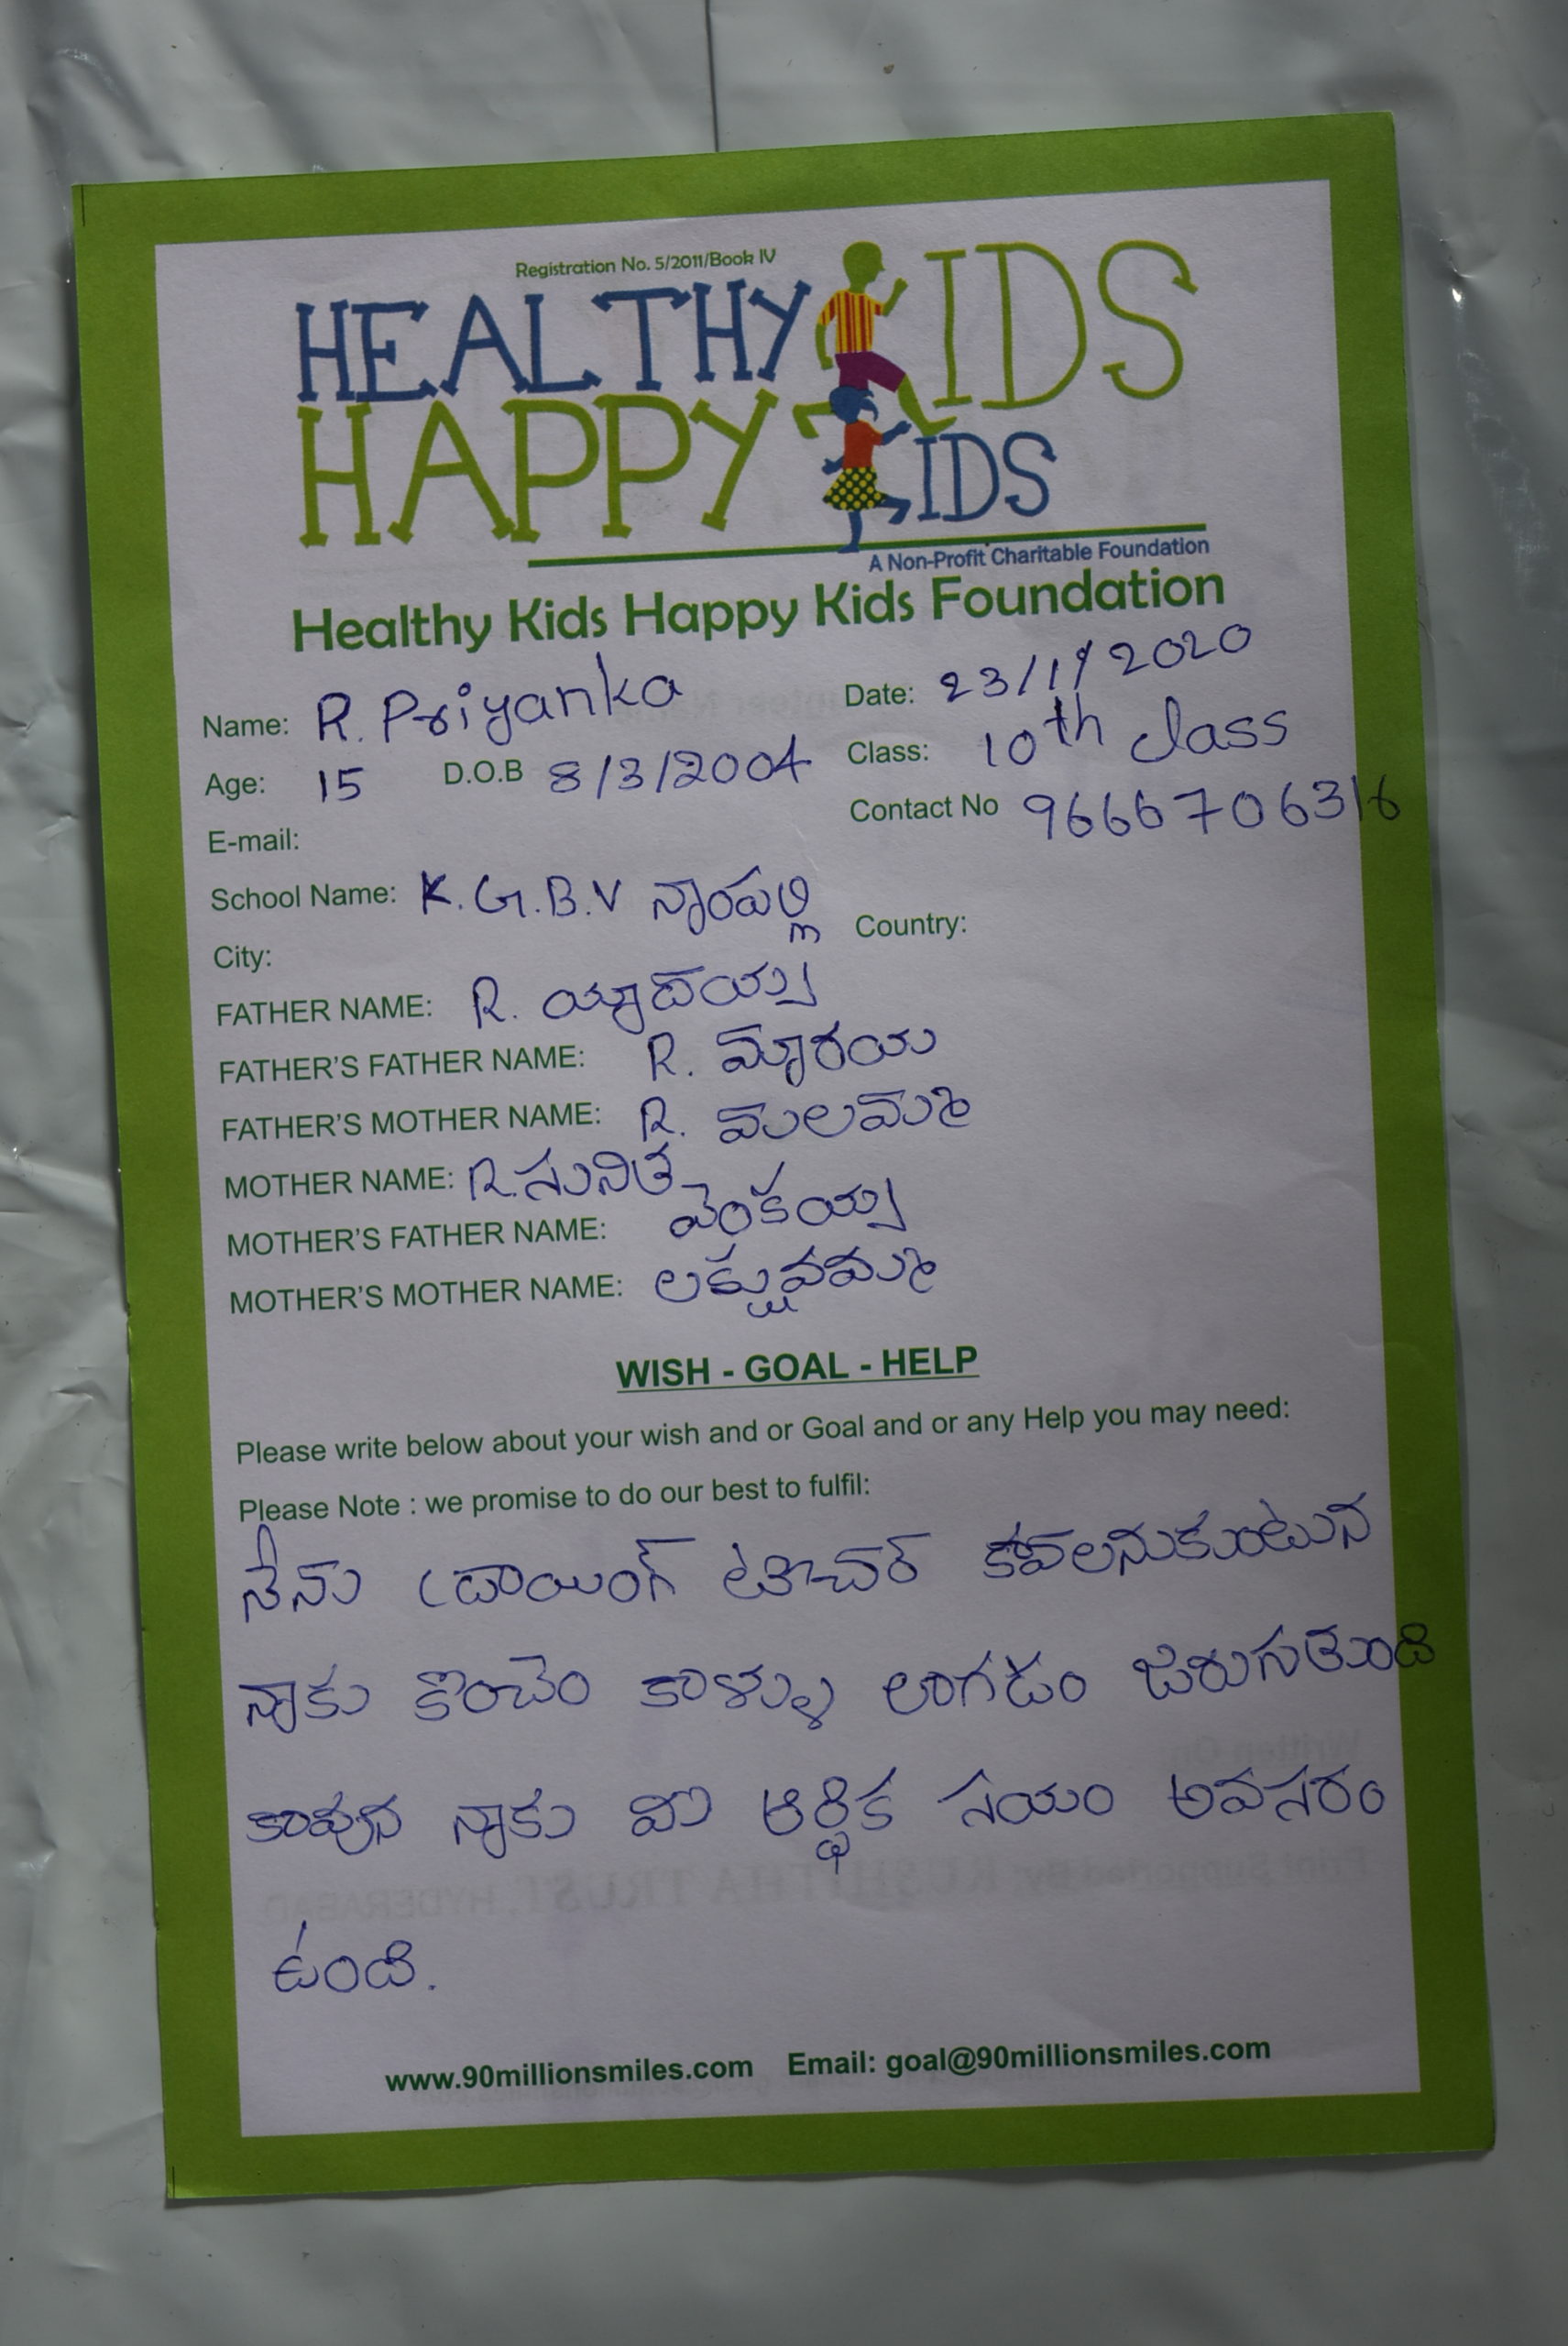 Registration No. 5/2011/Book IV
HEALTHY KIDS
HAPPY KIDS
A Non-Profit Charitable Foundation
Healthy Kids Happy Kids Foundation
Name: R. Priyanka Date: 23/1/2020
Age: 15 D.O.B 8/3/2004 Class: 10th class
E-mail: Contact No 9666706316
School Name: K.G.B.V నాంపల్లి
City: Country:
FATHER NAME: R. యాదయ్య
FATHER'S FATHER NAME: R. మారయ
FATHER'S MOTHER NAME: R. మలమ్మ
MOTHER NAME: R. సునిత
MOTHER'S FATHER NAME: వెంకయ్య
MOTHER'S MOTHER NAME:
WISH - GOAL - HELP
Please write below about your wish and or Goal and or any Help you may need:
Please Note : we promise to do our best to fulfil:
నేను డ్రాయింగ్ టీచర్ కావలనుకుంటున
నాకు కొంచెం కాళ్ళు లాగడం జరుగుతుంది
కావున నాకు మీ ఆర్థిక సయం అవసరం
ఉంది.
www.90millionsmiles.com Email: goal@90millionsmiles.com